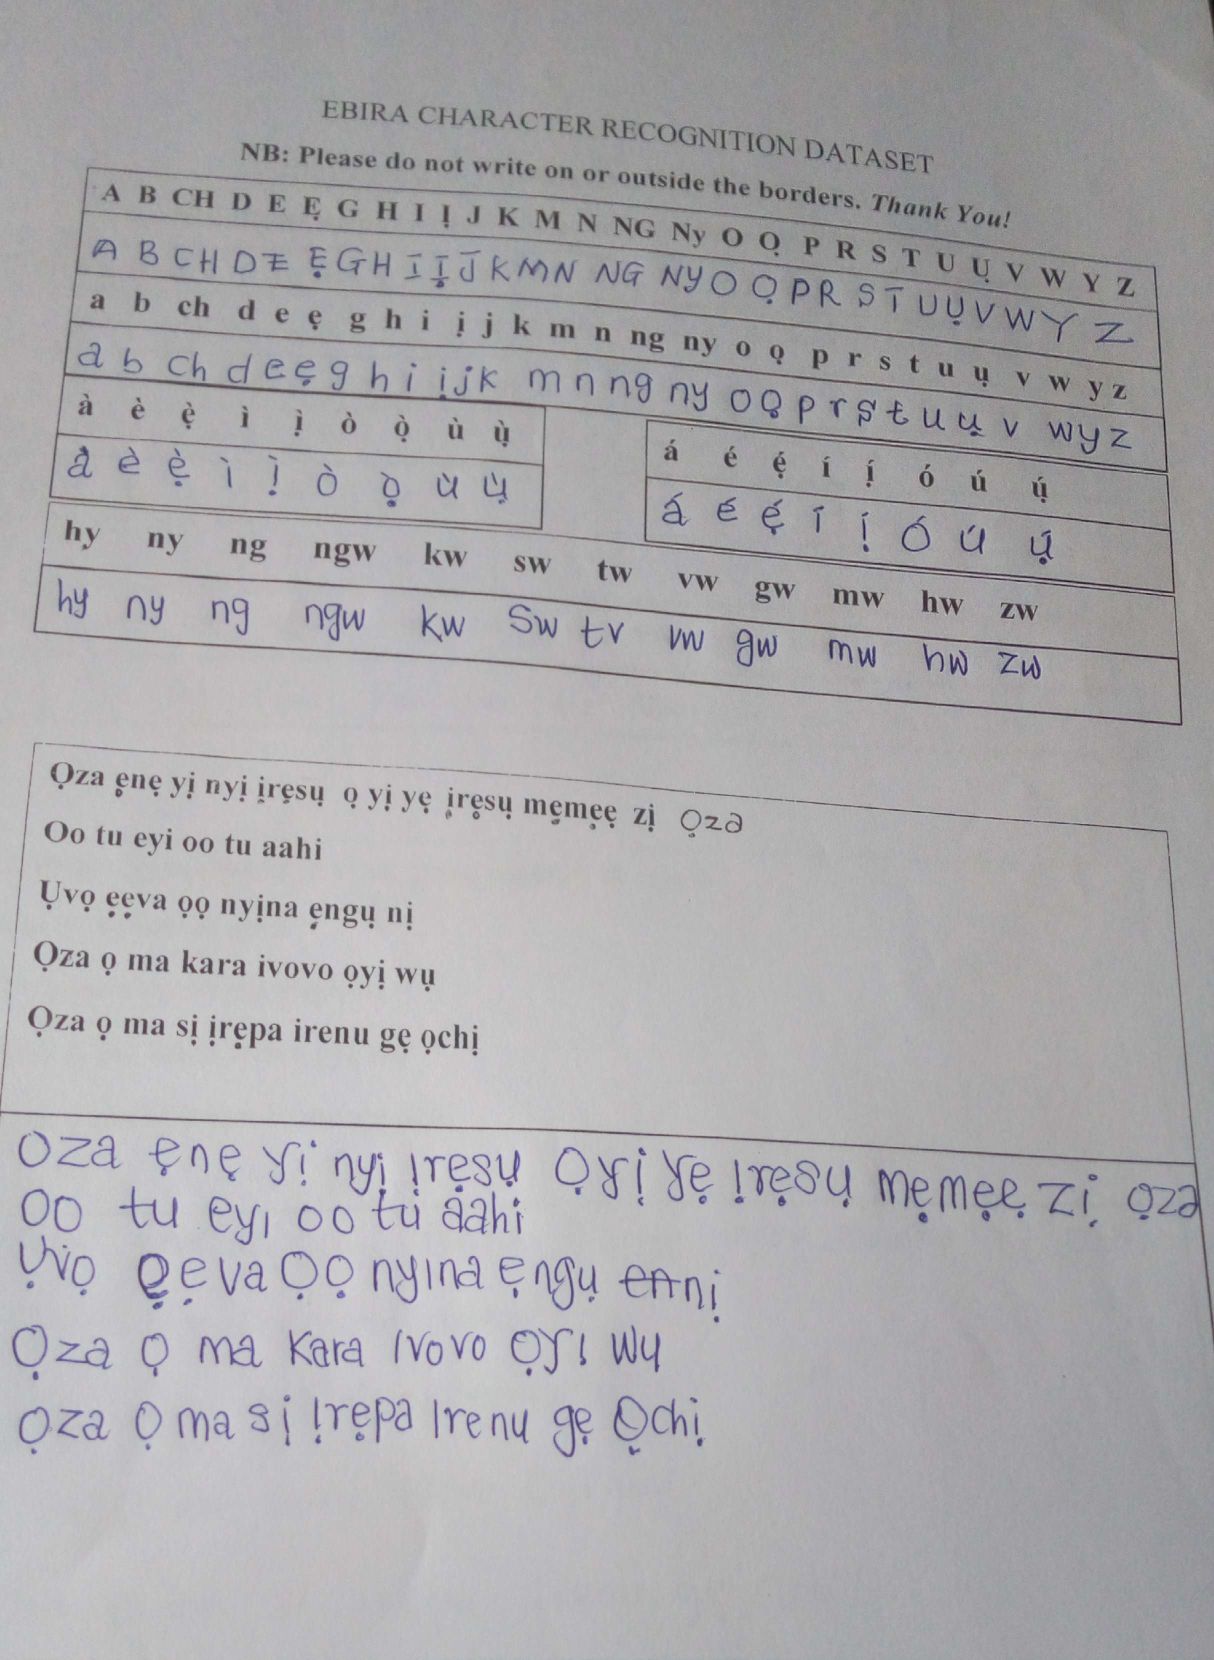 EBIRA CHARACTER RECOGNITION DATASET
NB: Please do not write on or outside the borders. Thank You!
A B CH D E Ẹ G H I Ị J K M N NG Ny O Ọ P R S T U Ụ V W Y Z
A B CH D E Ẹ G H I Ị J K M N NG NY O Ọ P R S T U Ụ V W Y Z
a b ch d e ẹ g h i ị j k m n ng ny o ọ p r s t u ụ v w y z
a b ch d e ẹ g h i ị j k m n ng ny o ọ p r s t u ụ v w y z
à è ẹ̀ ì ị̀ ò ọ̀ ù ụ̀
à è ẹ̀ ì ị̀ ò ọ̀ ù ụ̀
á é ẹ́ í ị́ ó ú ụ́
á é ẹ́ í ị́ ó ú ụ́
hy ny ng ngw kw sw tw vw gw mw hw zw
hy ny ng ngw kw sw tv vw gw mw hw zw
Ọza ẹnẹ yị nyị ịrẹsụ ọ yị yẹ ịrẹsụ mẹmẹẹ zị ọza
Oo tu eyi oo tu aahi
Ụvọ ẹẹva ọọ nyịna ẹngụ nị
Ọza ọ ma kara ivovo ọyị wụ
Ọza ọ ma sị ịrẹpa irenu gẹ ọchị
Oza ẹnẹ yị nyị ịrẹsụ Ọ yị yẹ ịrẹsụ mẹmẹẹ zị ọza
OO tu eyi oo tu aahi
Ụvọ ẹẹva Ọọ nyina ẹngụ nị
Ọza ọ ma kara ivovo ọyị wu
Ọza ọ ma sị ịrẹpa irenu gẹ Ọchị